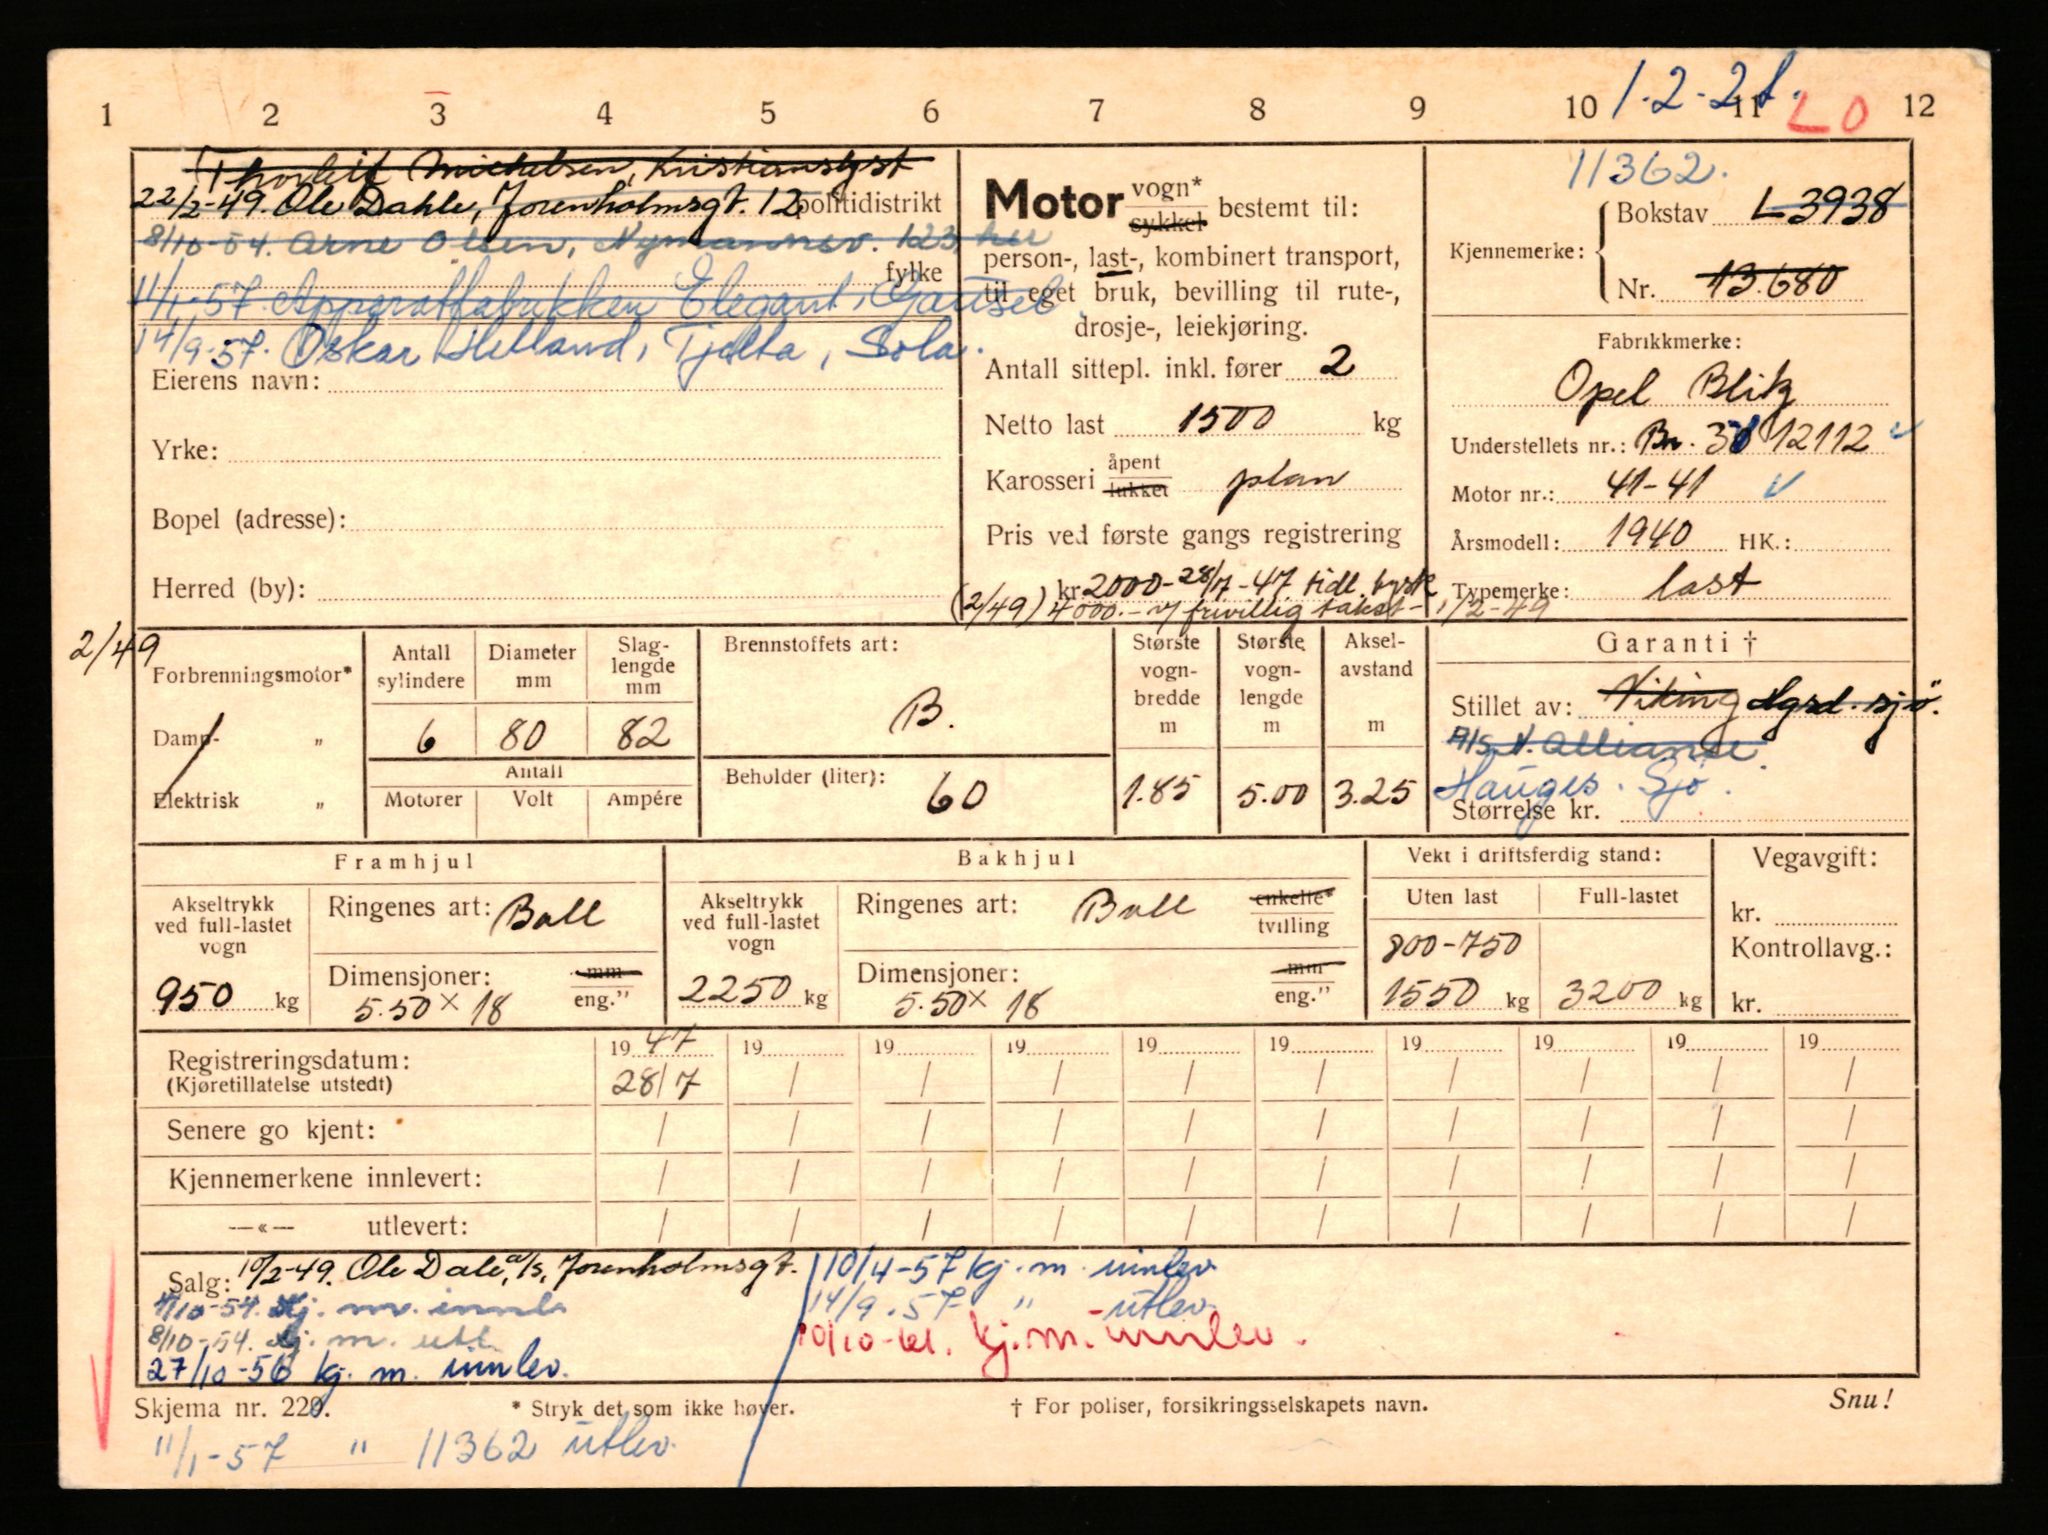 1 2 3 4 5 6 7 8 9 10 11 12
1-2-2t. LO
Thorleif Mickelsen, Kristianslyst
22/2-49. Ole Dahle, Jorenholmsgt. 12 politidistrikt
8/10-54. Arne Olsen, Nymannsv. 123 her
fylke
11/1-57 Apparatfabrikken Elegant, Gausel
14/9-57. Oskar Helland, Tjelta, Sola.
Eierens navn:
Yrke:
Bopel (adresse):
Herred (by):
Motor vogn* sykkel bestemt til:
person-, last-, kombinert transport,
til eget bruk, bevilling til rute-,
drosje-, leiekjøring.
Antall sittepl. inkl. fører 2
Netto last 1500 kg
Karosseri åpent lukket plan
Pris ved første gangs registrering
kr 2000- 28/7-47 tidl. tysk
(2/49) 4000.- v/ frivillig takst - 1/2-49
11362.
Kjennemerke: Bokstav L 3938
Nr. 13.680
Fabrikkmerke:
Opel Blitz
Understellets nr.: Bn. 30 12112
Motor nr.: 41-41
Årsmodell: 1940 HK.:
Typemerke: last
2/49
Forbrenningsmotor*
Damp- „
Elektrisk „
Antall sylindere Diameter mm Slag-lengde mm
6 80 82
Antall
Motorer Volt Ampére
Brennstoffets art:
B.
Beholder (liter): 60
Største vogn-bredde m Største vogn-lengde m Aksel-avstand m
1.85 5.00 3.25
Garanti †
Stillet av: Viking Agrd. sjö.
A/S N. Allianse.
Hauges. Sjø.
Størrelse kr.
Framhjul
Akseltrykk ved full-lastet vogn
950 kg
Ringenes art: Ball
Dimensjoner: mm eng."
5.50 x 18
Bakhjul
Akseltrykk ved full-lastet vogn
2250 kg
Ringenes art: Ball enkelte* tvilling
Dimensjoner: mm eng."
5.50 x 18
Vekt i driftsferdig stand:
Uten last Full-lastet
800-750
1550 kg 3200 kg
Vegavgift:
kr.
Kontrollavg.:
kr.
Registreringsdatum: 19 47 19 19 19 19 19 19 19 19 19
(Kjøretillatelse utstedt) 28/7 / / / / / / / / /
Senere go kjent: / / / / / / / / / /
Kjennemerkene innlevert: / / / / / / / / / /
—«— utlevert: / / / / / / / / / /
Salg: 10/2-49. Ole Dale, a/s, Jorenholmsgt.
4/10-54. Kj. m. innl.
8/10-54. kj. m. utl.
27/10-56 kj. m. innlev.
10/4-57 kj. m. innlev.
14/9.57 " - utlev.
10/10-61. kj. m. innlev.
Skjema nr. 220. * Stryk det som ikke høver. † For poliser, forsikringsselskapets navn. Snu!
11/1-57 " 11362 utlev.